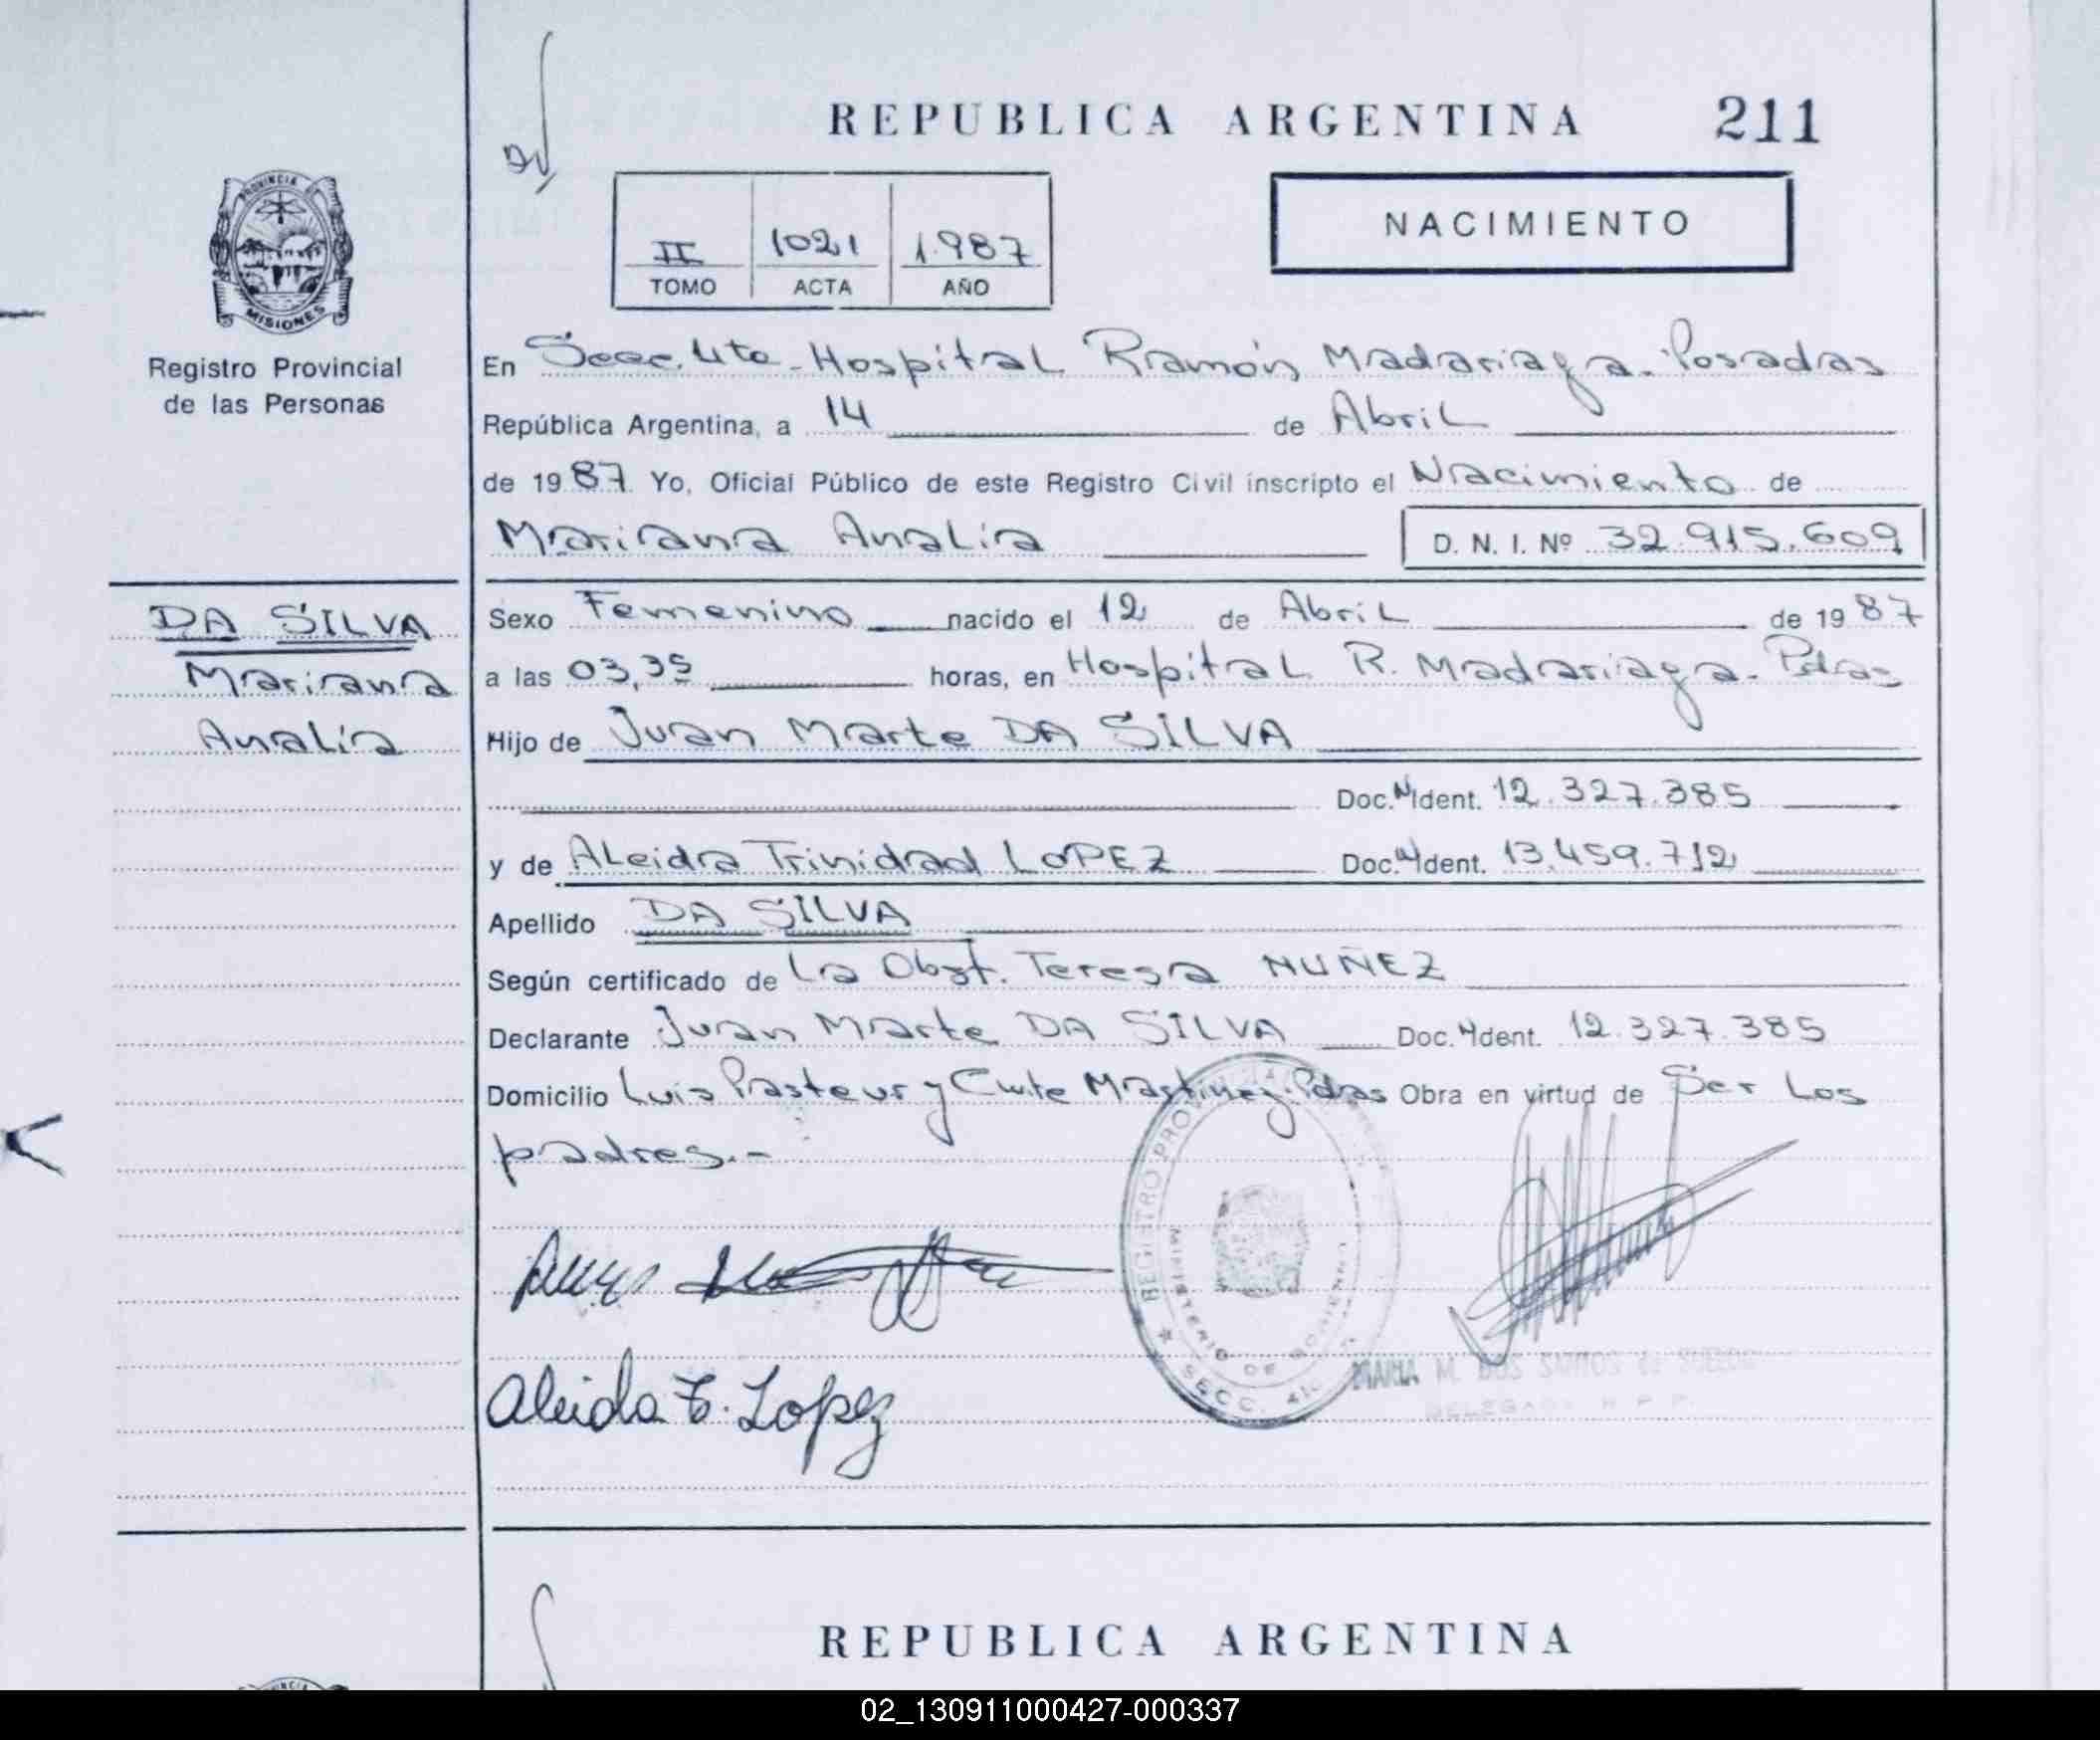 REPUBLICA ARGENTINA 211
NACIMIENTO
II 1021 1.987
TOMO ACTA AÑO
PROVINCIA DE
MISIONES
Registro Provincial
de las Personas
En Secc. 4ta - Hospital Ramón Madariaga - Posadas
República Argentina, a 14 de Abril
de 1987 Yo, Oficial Público de este Registro Civil inscripto el Nacimiento de
Mariana Analía D. N. I. Nº 32.915.609
DA SILVA
Mariana
Analía
Sexo Femenino nacido el 12 de Abril de 1987
a las 03,35 horas, en Hospital R. Madariaga - Pdas
Hijo de Juan Marte DA SILVA
Doc. N Ident. 12.327.385
y de Aleida Trinidad LOPEZ Doc. N Ident. 13.459.712
Apellido DA SILVA
Según certificado de La Obst. Teresa NUÑEZ
Declarante Juan Marte DA SILVA Doc. N Ident. 12.327.385
Domicilio Luis Pasteur y Cmte Martinez - Pdas Obra en virtud de Ser Los
padres.-
REGISTRO
MINISTERIO DE GOBIERNO
SECC. 4ta
Aleida T. Lopez
MARIA M. DOS SANTOS de
DELEGADA R. P. P.
REPUBLICA ARGENTINA
02_130911000427-000337